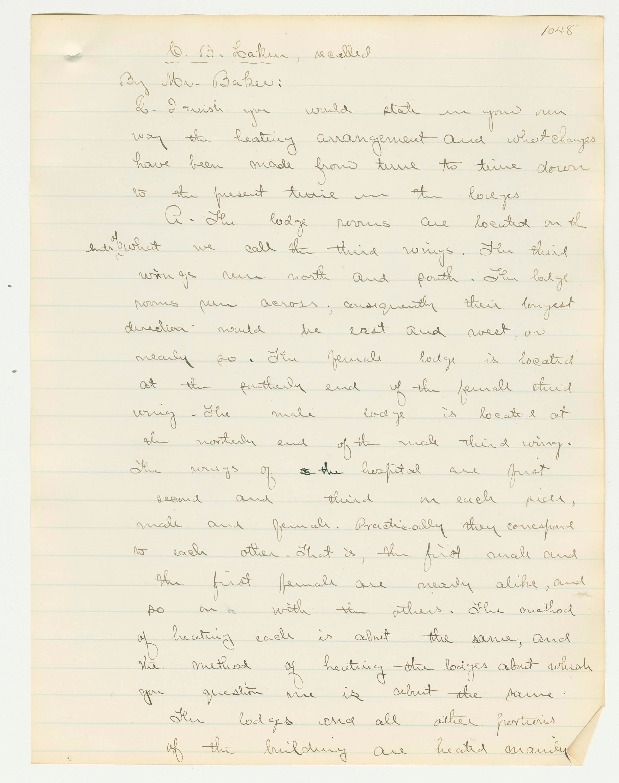 1048
C. B. Lakin, recalled
By Mr. Baker:
Q. I wish you would state in your own
way the heating arrangement and what changes
have been made from time to time down
to the present time in the lodges
A. The lodge rooms are located on the
ends of what we call the third wings. The third
wings run north and south. The lodge
rooms run across, consequently their longest
direction would be east and west, or
nearly so. The female lodge is located
at the southerly end of the female third
wing. The male lodge is located at
the northerly end of the male third wing.
The wings of the hospital are first
second and third on each side,
male and female. Practically they correspond
to each other. That is, the first male and
the first female are nearly alike, and
so on with the others. The method
of heating each is about the same, and
the method of heating the lodges about which
you question me is about the same.
The lodges and all other portions
of the building are heated mainly